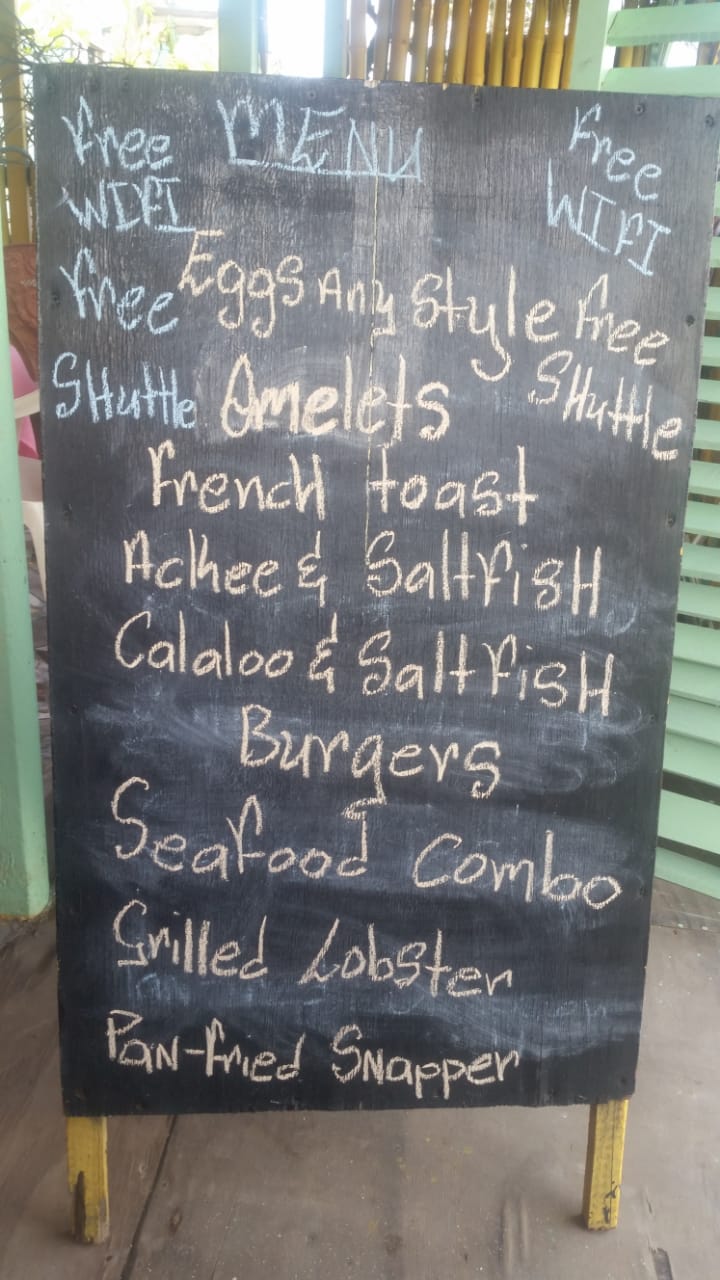 Free MENU Free
WIFI WIFI
Free Eggs Any Style Free
SHuttle Omelets SHuttle
French toast
Ackee & SaltfisH
Calaloo & SaltfisH
Burgers
Seafood Combo
Grilled Lobster
Pan-fried Snapper